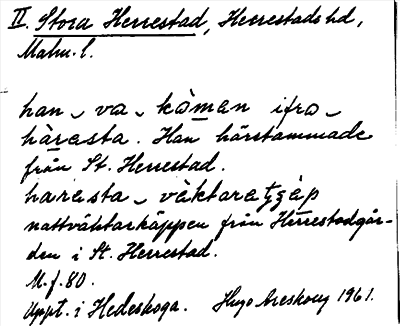 II. Stora Herrestad, Herrestads hd,
Malm. l.
han va kòmen ifra
hàrasta. Han härstammade
från St. Herrestad.
harasta vèktaretzèp
nattväktarkäppen från Herrestadgår-
den i St. Herrestad.
M.f.80.
Uppt. i Hedeskoga. Hugo Areskoug 1961.